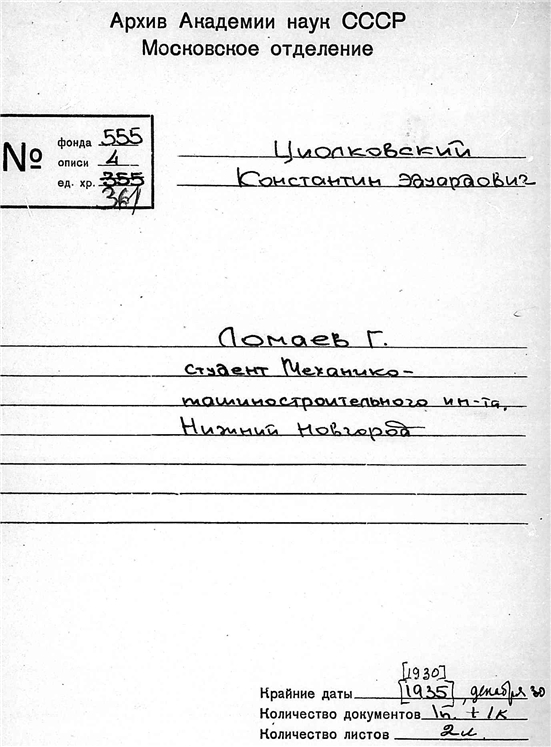 Архив Академии наук СССР
Московское отделение
№
фонда 555
описи 4
ед. хр. 355
361
Циолковский
Константин Эдуардович
Ломаев Г.
студент Механико-
машиностроительного ин-та,
Нижний Новгород
[1930]
Крайние даты [1935], декабря 30
Количество документов 1п. + 1к
Количество листов 2л.